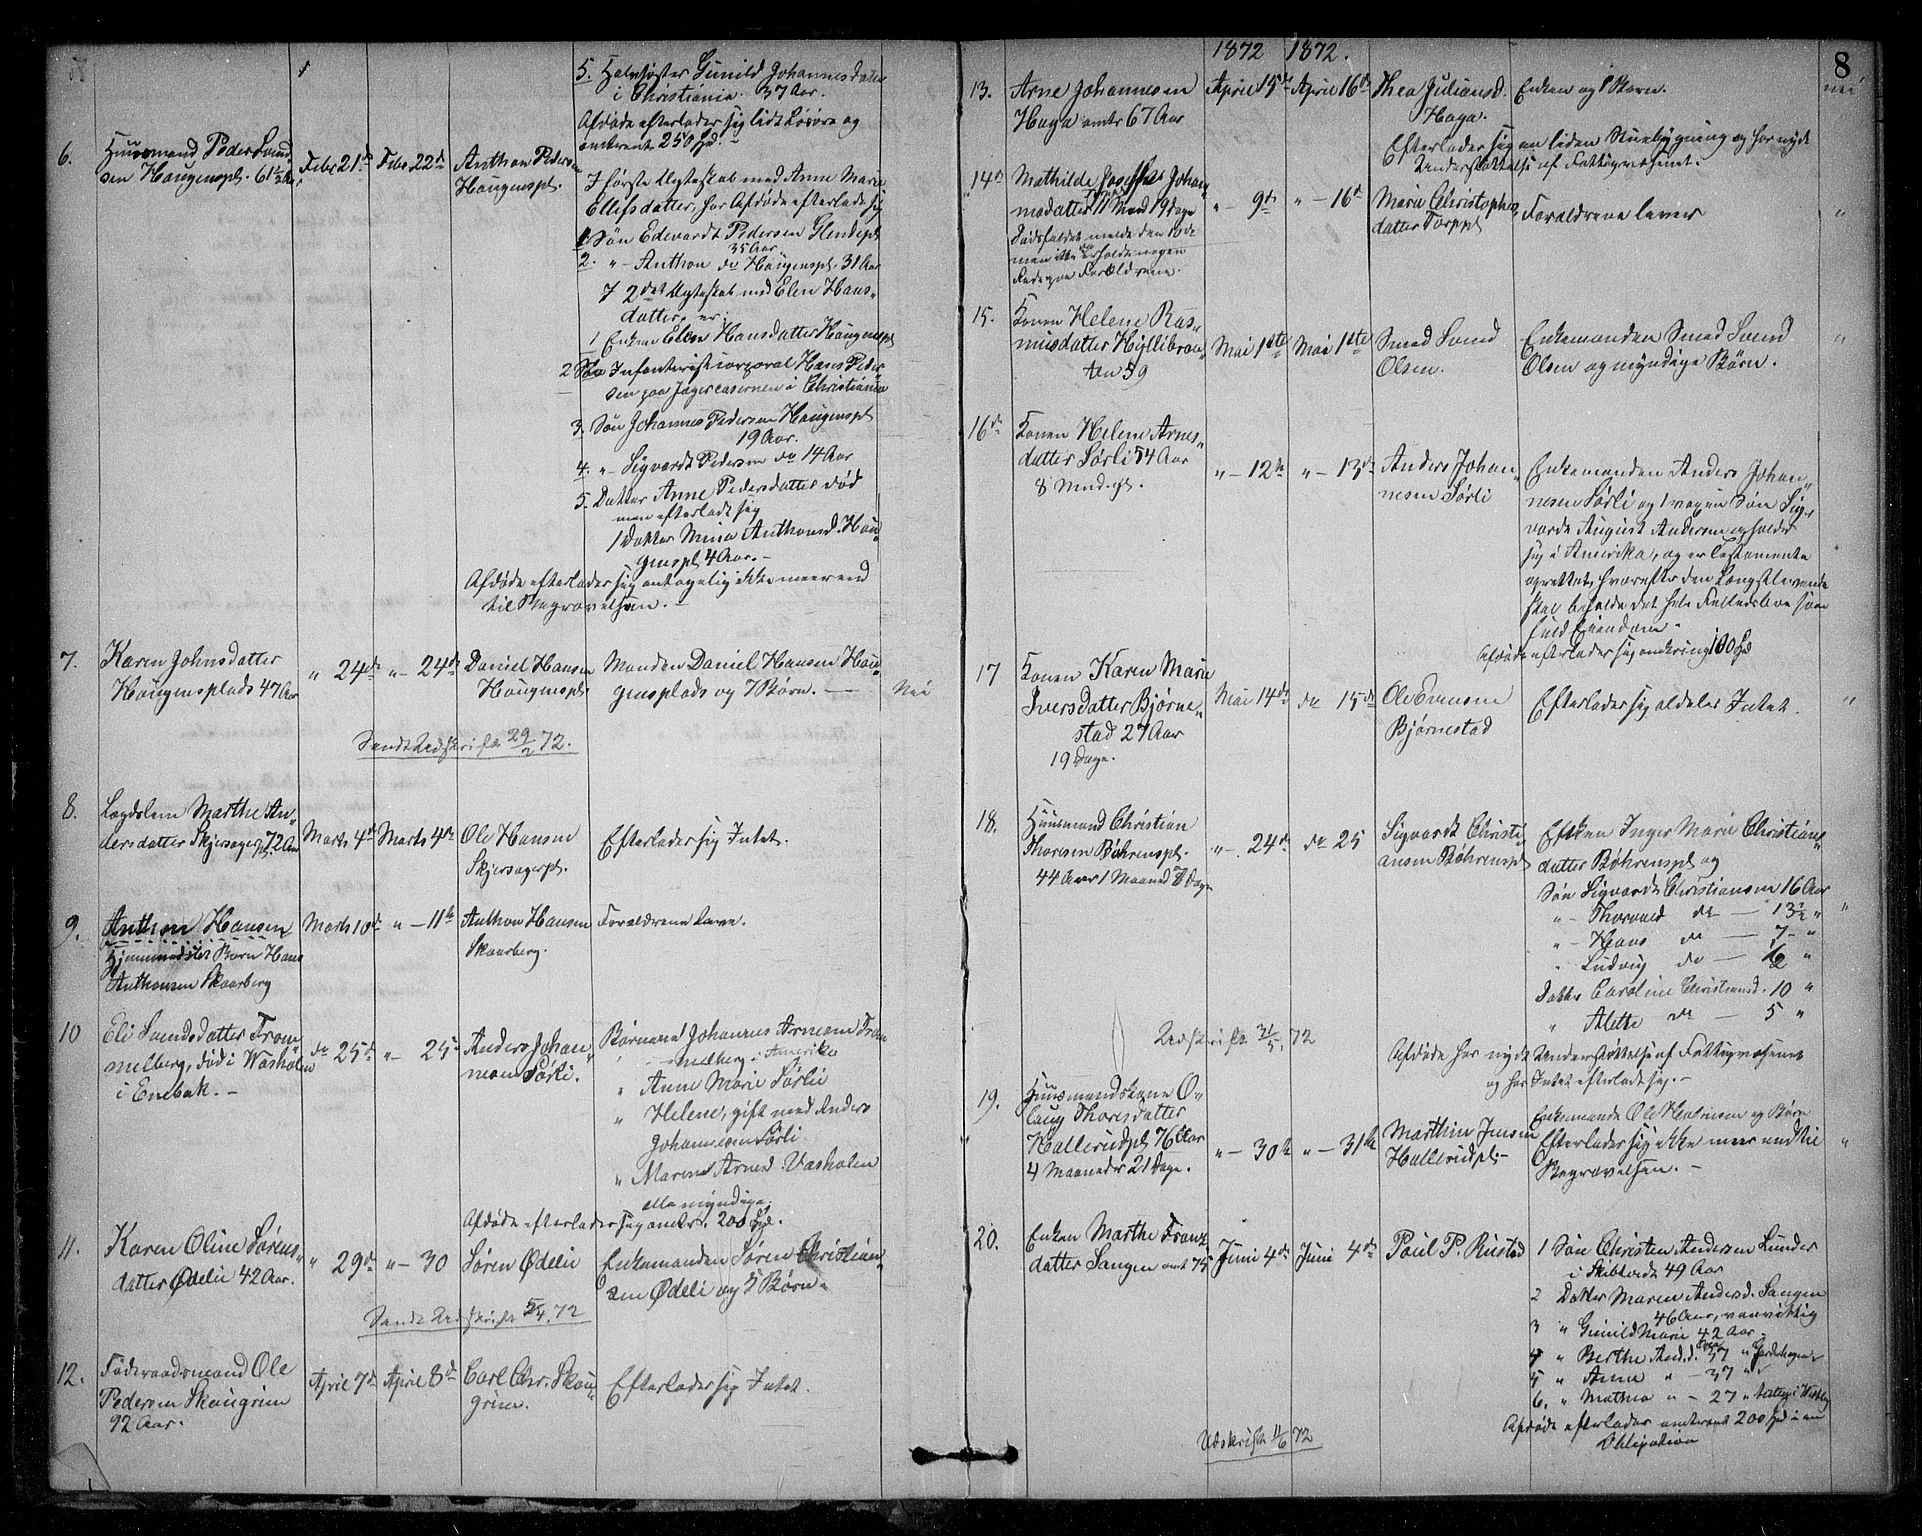 5. Halvsøster Gunild Johannesdatter
i Christiania. 37 Aar.
Afdøde efterlader sig lidt Løsøre og
omtrent 250 Spd. -
6. Huusmand Peder Svend-
sen Haugenspl. 61½ Aar
Febr 21de Febr 22de
Anthon Pedersen
Haugenspl.
I første Ægteskab med Anne Marie
Ellefsdatter, har Afdøde efterladt sig
1. Søn Edevardt Pedersen Glendepl
35 Aar
2. " - Anthon do Haugenspl. 31 Aar
I 2det Ægteskab med Elen Hans-
datter, er:
1 Enken Elen Hansdatter Haugenspl
2 Søn Infanteriekorporal Hans Peder-
sen paa Jægercasernen i Christiania
3. Søn Johannes Pedersen Haugenspl
19 Aar.
4. " - Sigvardt Pedersen do 14 Aar
5. Datter Anne Pedersdatter død
men efterladt sig
1 Datter Mina Anthonsd. Hau-
genspl 4 Aar. -
Afdøde efterlader sig antagelig ikke meer end
til Begravelsen. -
7. Karen Johnsdatter
Haugensplads 47 Aar
" 24de " - 24de
Daniel Hansen
Haugenspl.
Manden Daniel Hansen Hau-
gensplads og 7 Børn. - Nei
Sendt Udskrift 29/2 72.
8. Lægdslem Marthe An-
dersdatter Skjersagerpl. 72 Aar
Marts 4de Marts 4de
Ole Hansen
Skjersagerpl.
Efterlader sig Intet.
9. Anthon Hansen
Hjemmedøbt Barn Hans
Anthonsen Skaarberg
Marts 10de " - 11te
Anthon Hansen
Skaarberg.
Forældrene leve.
10 Eli Svendsdatter From-
melberg, død i Washolen
i Enebak. -
do 25de " - 25
Anders Johan-
nesen Sørli.
Børnene Johannes Arnesen From-
melberg i Amerika
" Anne Marie Sørlie
" Helene, gift med Anders
Johannesen Sørli
" Maren Arnesd. Vasholen
alle myndige.
Afdøde efterlader sig omtr. 200 Spd.
11. Karen Oline Sørens-
datter Ødelie 42 Aar.
" 29de " - 30
Søren Ødelie
Enkemanden Søren Christian-
sen Ødeli og 5 Børn.
Sendt Udskrift 5/4 72
12. Føderaadsmand Ole
Pedersen Skaugrim
92 Aar.
April 7de April 8de
Carl Chr. Skau-
grim.
Efterlader sig Intet.
8
1872 1872.
nei
13. Arne Johannesen
Haga omtr 67 Aar
April 15de April 16de
Thea Juliansd.
Haga.
Enken og 1 Barn.
Efterlader sig en liden Stuebygning og har nydt
Understøttelse af Fattigvæsenet.
14de Mathilde Josefine Johan-
nesdatter 11 Mnd 19 Dage
" - 9de " - 16de
Marie Christophers-
datter Torppl
Forældrene lever
"
Dødsfaldet meldt den 10de
men ikke erholdt nogen
Rede paa Forældrene.
15. Konen Helene Ras-
musdatter Hyllibraa-
ten 59
Mai 1ste Mai 1ste
Smed Svend
Olsen.
Enkemanden Smed Svend
Olsen og myndige Børn.
"
16de Konen Helene Arnes-
datter Sørli 54 Aar
8 Mnd. gl.
" - 12te " - 13de
Anders Johan-
nesen Sørli
Enkemanden Anders Johan-
nesen Sørli og 1 voxen Søn Sig-
vardt August Andersen opholder
sig i Amerika, og er Testamente
oprettet, hvorefter den Længstlevende
skal beholde det hele Fællesboe som
fuld Eiendom.
"
Afdøde efterlader sig omkring 100 Spd
17 Konen Karen Marie
Iversdatter Bjørne-
stad 27 Aar
19 Dage.
Mai 14de do 15de
Ole Evensen
Bjørnestad
Efterlader sig aldeles Intet.
"
18. Huusmand Christian
Thoresen Bøhrenspl.
44 Aar 1 Maaned 8 Dage
" - 24de do 25
Sigvardt Christi-
ansen Bøhrenspl
Enken Inger Marie Christians-
datter Bøhrenspl og
Søn Sigvardt Christiansen 16 Aar
" - Thorvald do - 13½ "
" - Hans do - 7 - "
" Ludvig do - ½ "
Datter Caroline Christiansd. 10 "
" Alette do - 5 "
"
Udskrift 31/5 72
Afdøde har nydt Understøttelse af Fattigvæsenet
og har Intet efterladt sig. -
19. Huusmandskone O-
laug Thoresdatter
Hallerudpl 76 Aar
4 Maaneder 21 Dage.
" - 30te " - 31te
Marthin Jensen
Hallerudpl -
Enkemand Ole Halvorsen og Børn
Efterlader sig ikke meer end til
Begravelsen. -
"
20. Enken Marthe Franz-
datter Sangen omt 75
Juni 4de Juni 4de
Poul P. Rustad
1 Søn Christen Andersen Lunder
i Skibtvedt 49 Aar
2 Datter Maren Andersd. Sangen
46 Aar, vanvittig
3 " Gunild Marie 42 Aar
4 " Berthe And.d. 37 "
5 " Anne " - 37 "
6. " Mathea " - 27 "
Afdøde efterlader omtrent 200 Spd i en
Obligation
Udskrift 11/6 72